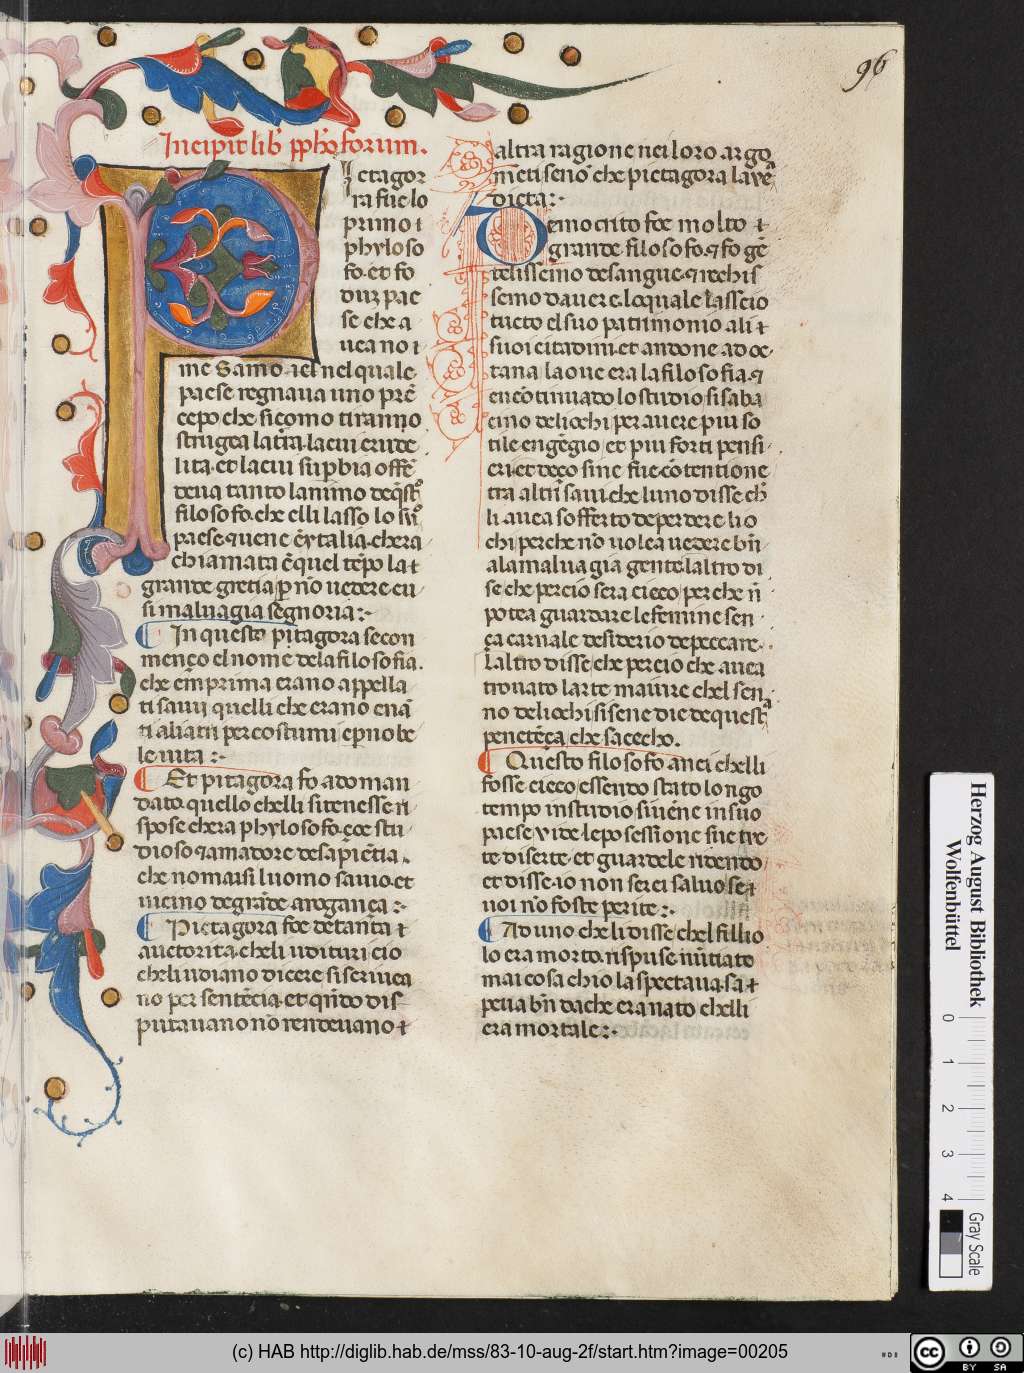 96
Incipit lib' pħo forum.
P
ictagor
ra fue lo
primo ⁊
phyloso
fo et fo
duz pae
se che a
uea no ⁊
me Samo iel nel quale
paese regnaua uno prē
cepo che si como tiranno
strugea la tr̄a la cui crude
lita et la cui sup̄bia offē
deua tanto lanimo de q̄sto
filosofo che elli lasso lo suo
paese ⁊ uene ē ytalia chera
chiamata ē quel tēpo la ⁊
grande gretia p nō uedere cu
si maluagia segnoria :-
In questo pitagora secon
menço el nome de la filosofia.
che ēm prima erano appella
ti sauij quelli che erano enā
ti ali atri per costumi ep no be
le uita :-
Et pitagora fo adoman
dato quello chelli si tenesse ri
spose chera phylosofo çoe stu
dioso ⁊ amadore de sapiētia.
che no mai si luomo sauio et
uicino de grāde arogança :-
Pictagora foe de tanta ⁊
auctorita che li uditturi cio
che li udiano dicere si scriuea
no per sentēcia et qn̄do dis
putauano nō rendeuano ⁊
altra ragione nei loro argo
mēti seno che pictagora lauē
dicta :-
Democrito foe molto ⁊
grande filosofo ⁊ fo gē
telissemo de sangue ⁊ rechis
semo dauere lo quale lasscio
tucto el suo patrimonio ali ⁊
suoi citadini et andone ad oc
tana la oue era la filosofia ⁊
en cōtinuado lo studio si saba
cino deli ochi per auere piu so
tile engēgio et piu forti pensi
eri et deço sine fue cōtentione
tra altri saui che luno disse ch̄
li auea sofferto de perdere li o
chi perche nō uolea uedere bn̄
ala maluagia gente laltro di
se che perciò sera cieco perche n̄
potea guardare le femine sen
ça carnale desiderio de peccare.
laltro disse che percio che auea
trouato larte maiure chel sen
no de li ochi si sene die de questa
penetēça che sacecho.
Questo filosofo anci chelli
fosse cieco essendo stato longo
tempo in studio si uēne in suo
paese vide le posessione sue tre
te diserte et guardele ridendo
et disse io non serei saluo se ⁊
uoi nō foste perite :-
Ad uno che li disse chel fillio
lo era morto rispuse nūtiato
mai cosa chio la spectaua sa ⁊
peua bn̄ da che era nato chelli
era mortale :-
Herzog August Bibliothek
Wolfenbüttel
0 1 2 3 4
Gray Scale
(c) HAB http://diglib.hab.de/mss/83-10-aug-2f/start.htm?image=00205
cc BY SA